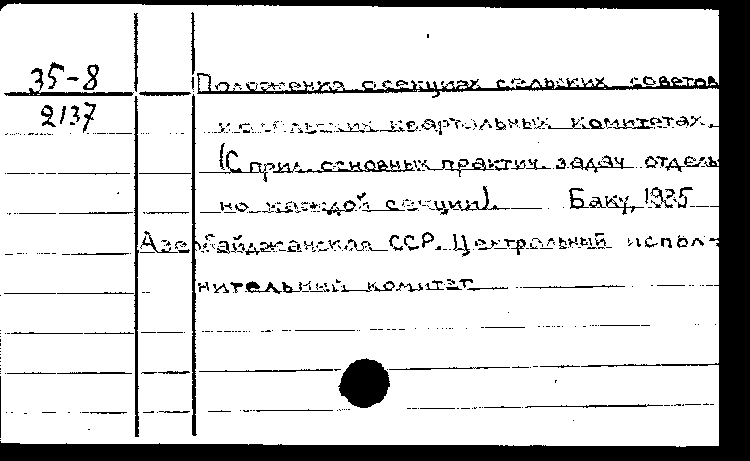 35-8
Положения о секциях сельских советов
2137
и о сельских квартальных комитетах.
(С прил. основных практич. задач отдель
но каждой секции). Баку, 1935
Азербайджанская ССР. Центральный испол-
нительный комитет